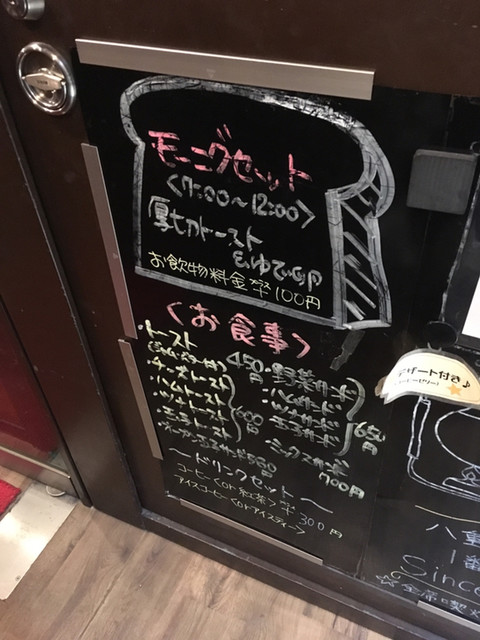 モーニングセット
<7:00~12:00>
厚切トースト
&ゆで卵
お飲物料金+100円
<お食事>
トースト
(ジャム・バター付) 450円
・チーズトースト
・ハムトースト
・ツナトースト
・玉子トースト
600円
・野菜サンド
・ハムサンド
・ツナサンド
・玉子サンド
650円
・ミックスサンド
700円
~ドリンクセット~
コーヒー(or紅茶)+300円
アイスコーヒー(orアイスティー)
デザート付き♪
Since